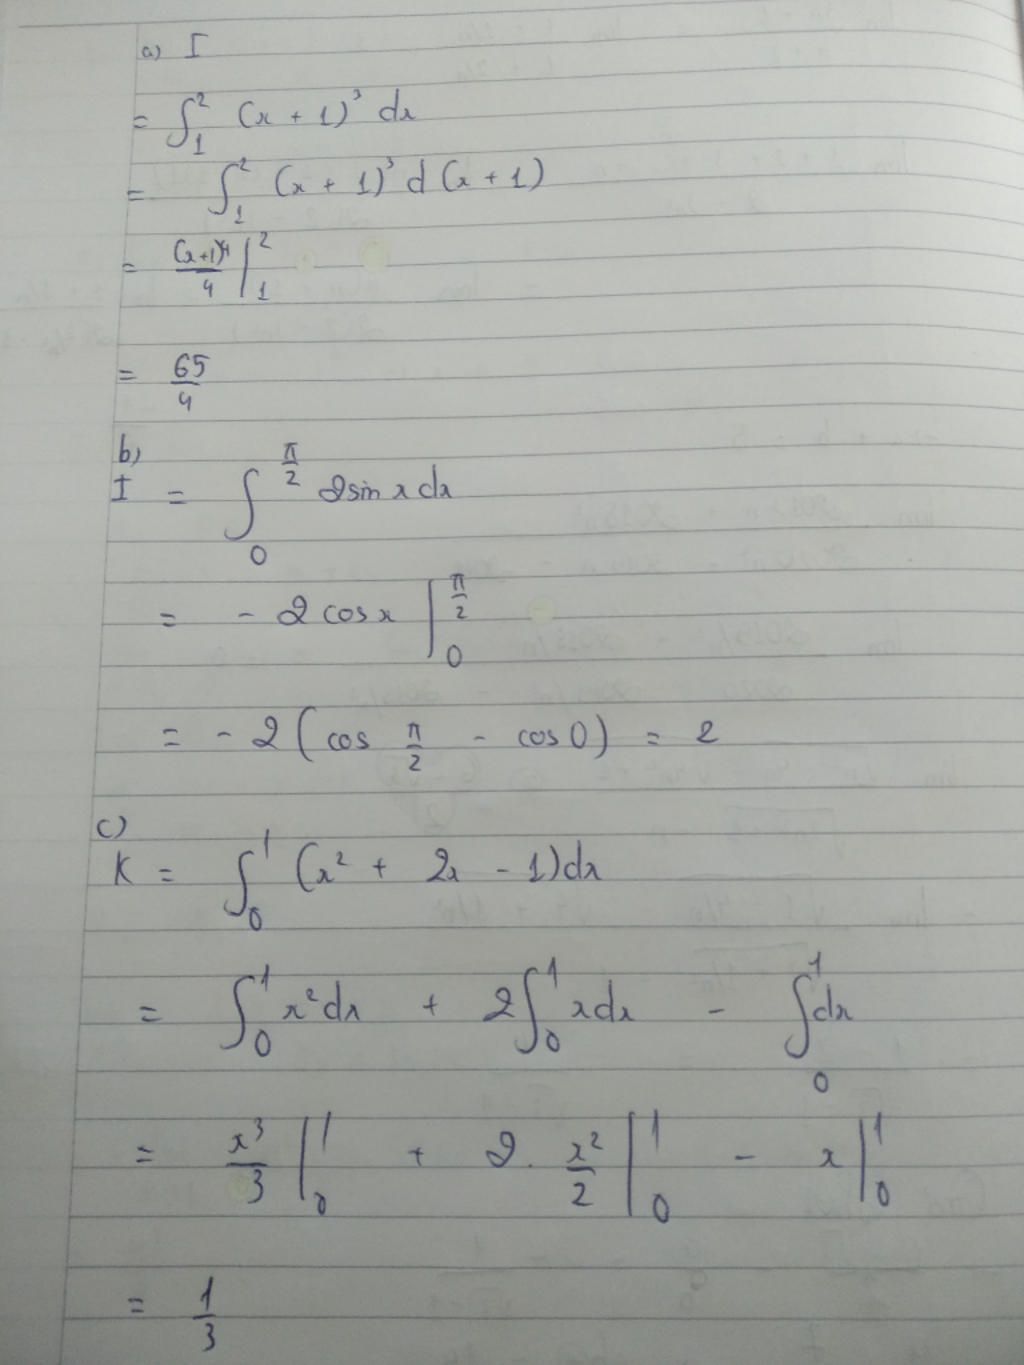 a) I
= ∫₁² (x + 1)³ dx
= ∫₁² (x + 1)³ d (x + 1)
= (x+1)⁴/4 |₁²
= 65/4
b)
I = ∫₀^(π/2) 2sin x dx
= - 2 cos x |₀^(π/2)
= - 2 (cos π/2 - cos 0) = 2
c)
K = ∫₀¹ (x² + 2x - 1)dx
= ∫₀¹ x²dx + 2∫₀¹ xdx - ∫₀¹ dx
= x³/3 |₀¹ + 2. x²/2 |₀¹ - x |₀¹
= 1/3